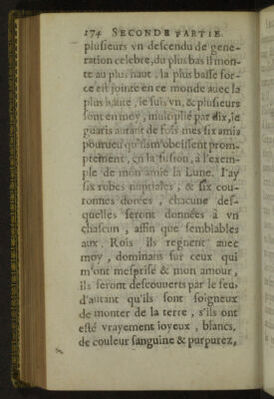 174 SECONDE PARTIE
plusieurs vn descendu de gene-
ration celebre, du plus bas il mon-
te au plus haut. la plus basse for-
ce est jointe en ce monde auec la
plus haute, ie suis vn, & plusieurs
sont en moy, multiplié par dix, ie
guaris autant de fois mes six amis
pourueu qu'ils m'obeïssent prom-
ptement, en la fusion, à l'exem-
ple de mon amie la Lune. I'ay
six robes nuptiales, & six cou-
ronnes dorées, chacune des-
quelles seront données à vn
chascun, affin que semblables
aux Rois ils regnent auec
moy, dominans sur ceux qui
m'ont mesprisé & mon amour,
ils seront descouuerts par le feu,
d'autant qu'ils sont soigneux
de monter de la terre, s'ils ont
esté vrayement ioyeux, blancs,
de couleur sanguine & purpurez,